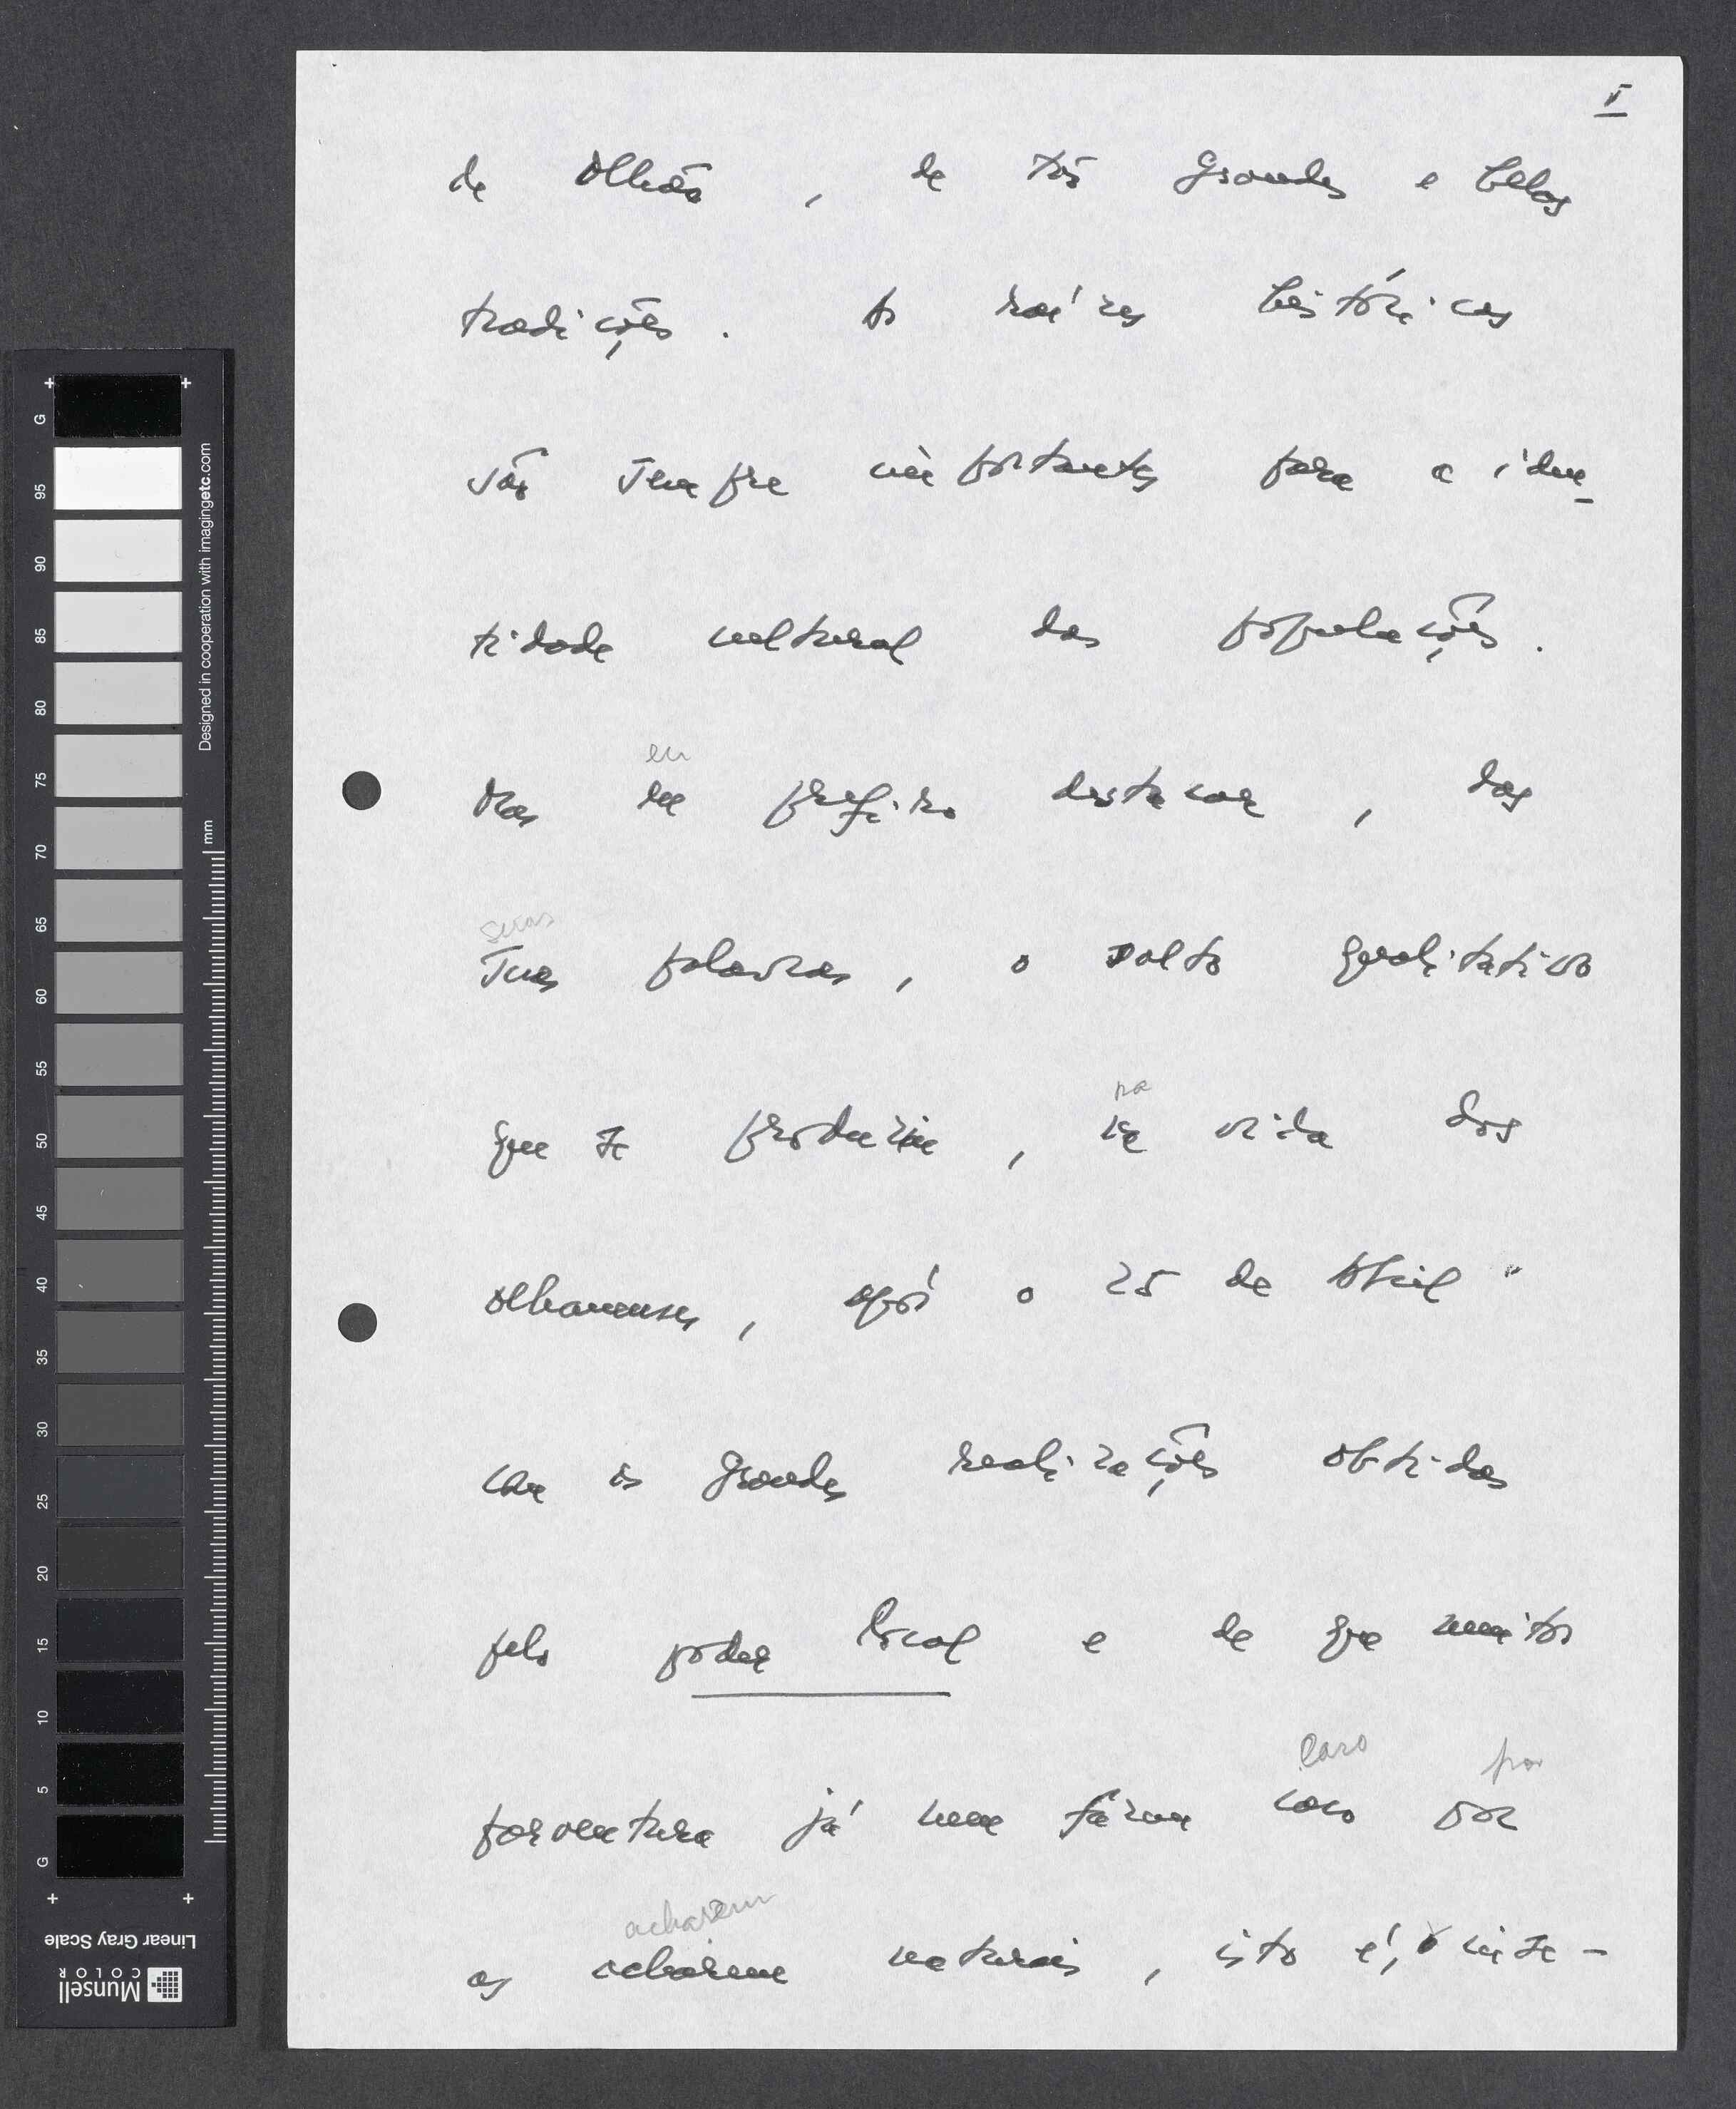 V
de Olhão, de tão grandes e belas
tradições. As raízes históricas
são sempre importantes para a iden-
tidade cultural das populações.
eu
Mas eu prefiro destacar, das
suas
suas palavras, o salto qualitativo
na
que se produziu, na vida dos
olhanenses, após o 25 de Abril"
com as grandes realizações obtidas
pelo poder local e de que muitos
caso por
porventura já nem fazem caso por
acharem
as acharem naturais, isto é, inse-
G 95 90 85 80 75 70 65 60 55 50 45 40 35 30 25 20 15 10 5 G
Designed in cooperation with imagingetc.com
mm
Linear Gray Scale
Munsell
COLOR